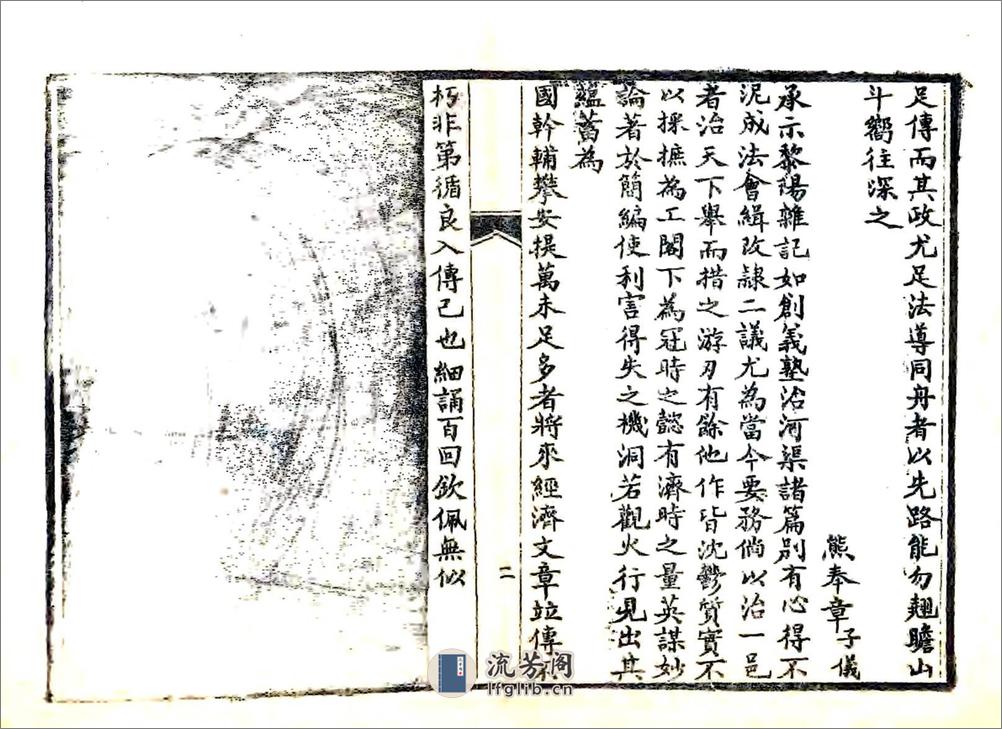 足傳而其政尤足法導同舟者以先路能勿翹瞻山
斗嚮往深之
熊奉章子儀
承示黎陽雜記如創義塾治河渠諸篇別有心得不
泥成法會緝改隸二議尤為當今要務倘以治一邑
者治天下舉而措之游刃有餘他作皆沈鬱質實不
以採摭為工閣下為冠時之懿有濟時之量英謀妙
論著於簡編使利害得失之機洞若觀火行見出其
蘊蓄為
國幹輔攀安提萬未足多者將來經濟文章竝傳不
二
朽非第循良入傳已也細誦百回欽佩無似
流芳阁
lfglib.cn